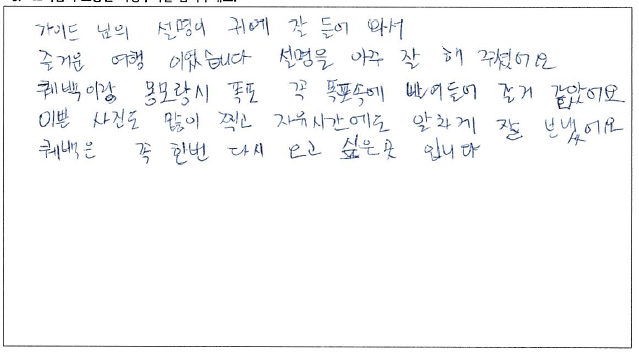 가이드 님의 설명이 귀에 잘 들어 와서
즐거운 여행 이었습니다 설명을 아주 잘 해 주셨어요
퀘백이랑 몽모랑시 폭포 꼭 폭포속에 들어 같았어요
이쁜 사진도 많이 찍고 자유시간에도 알차게 잘 보냈어요
퀘백은 꼭 한번 다시 오고 싶은곳 입니다